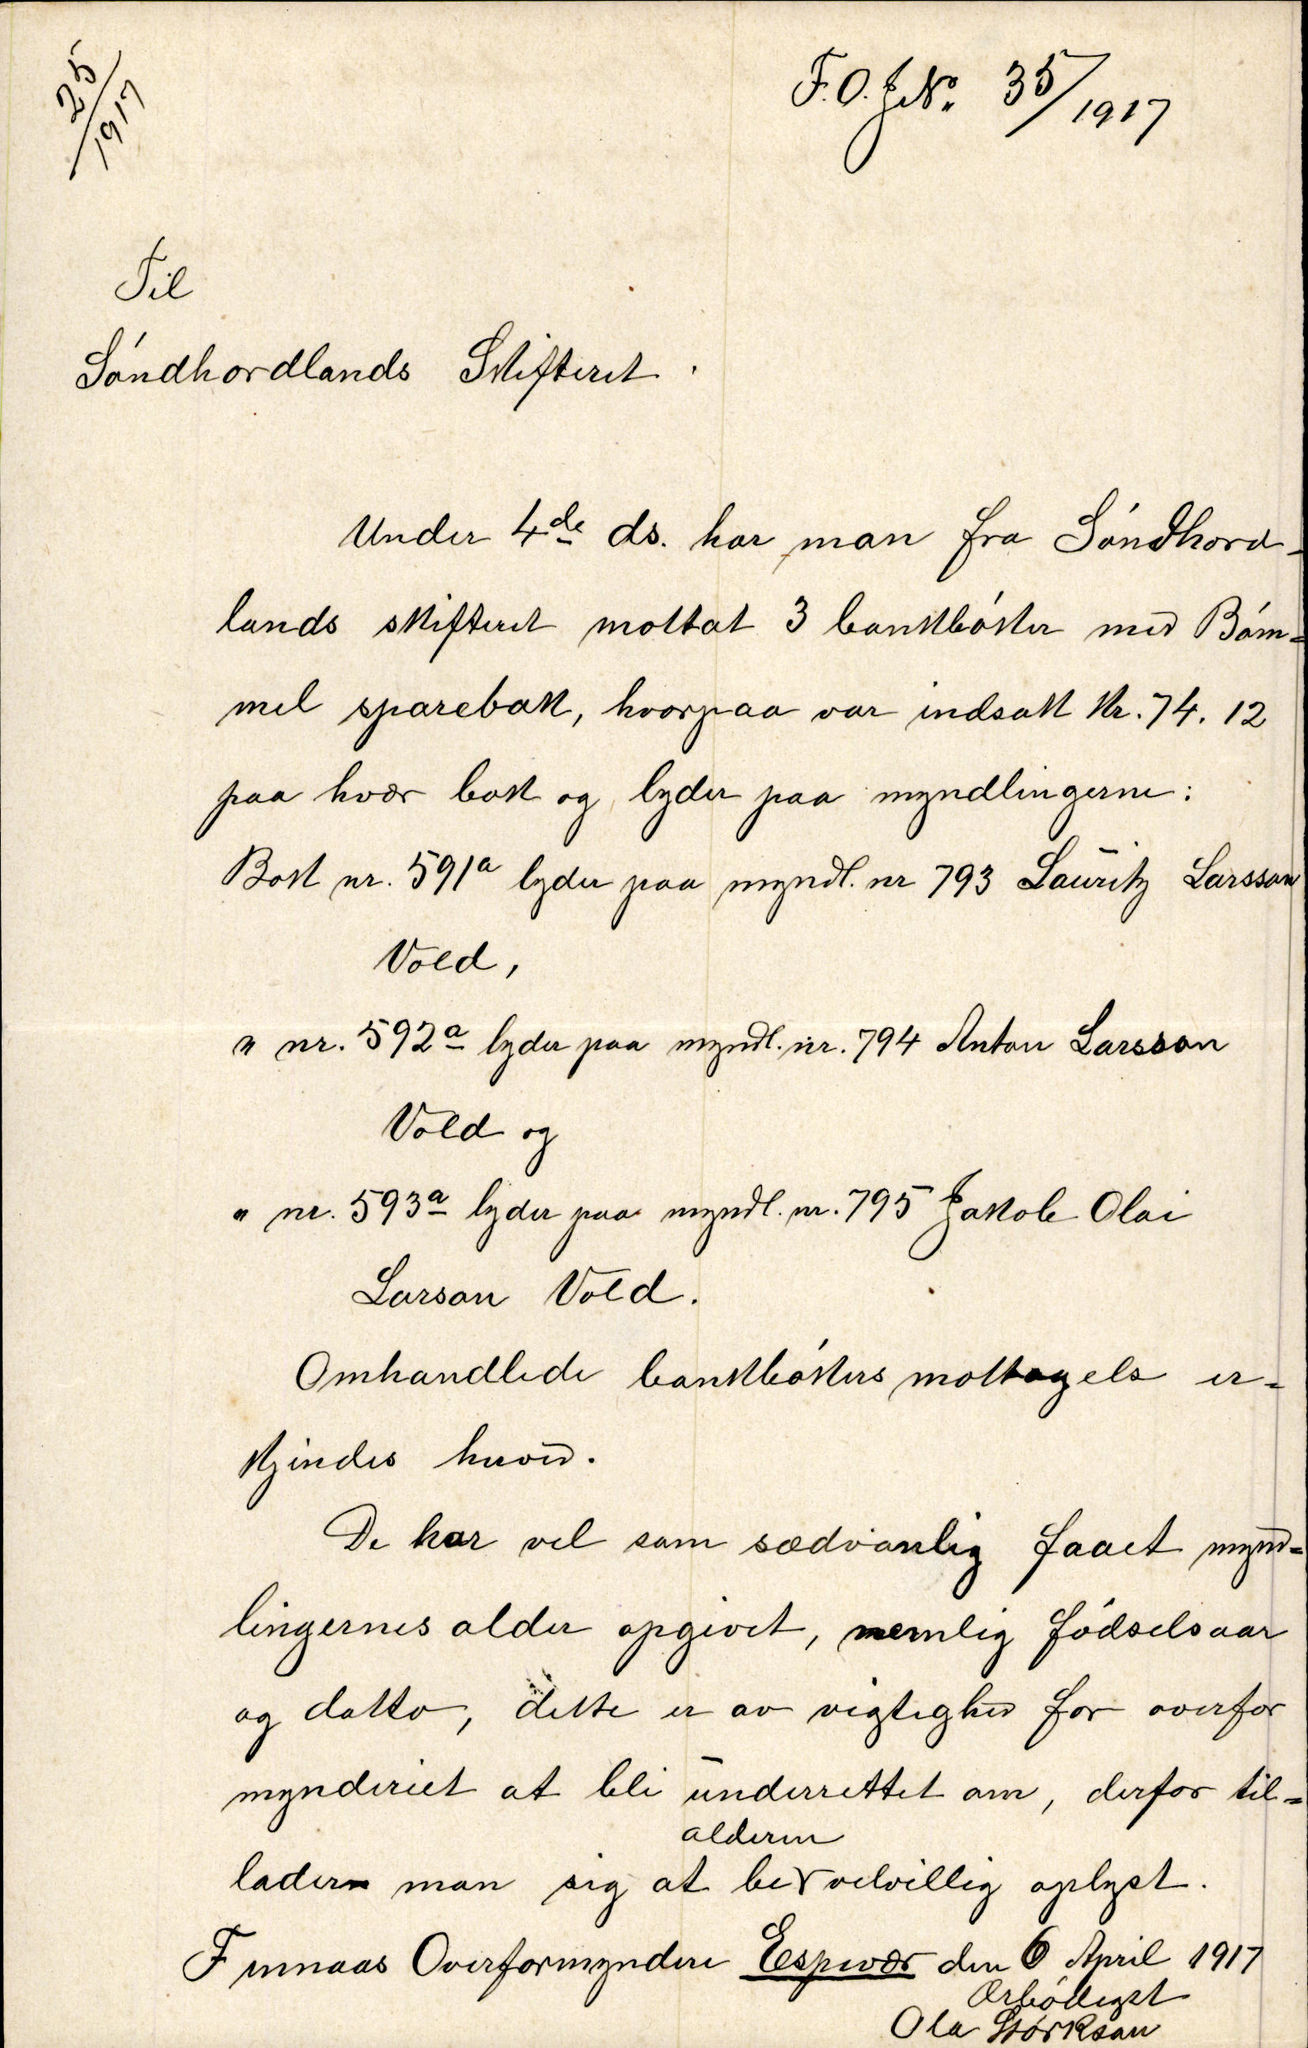 25/1917
F. O. J No. 35/1917
Til
Söndhordlands Skifteret.
Under 4de ds. har man fra Söndhord-
lands skifteret mottat 3 bankböker med Böm-
mel sparebak, hvorpaa var indsatt kr. 74. 12
paa hvær bok og lyder paa myndlingerne:
Bok nr. 591a lyder paa myndl. nr 793 Lauritz Larsson
Vold,
" nr. 592a lyder paa myndl. nr. 794 Anton Larsson
Vold og
" nr. 593a lyder paa myndl. nr. 795 Jakob Olai
Larson Vold.
Omhandlede bankbökers mottagels er-
kjendes herved.
De har vel som sædvanlig faaet mynd-
lingernes alder opgivet, nemlig födselsaar
og datto, dette er av vigtighed for overfor
mynderiet at bli underrettet om, derfor til-
alderen
lader man sig at be velvillig oplyst.
Finnaas Overformyndere Espevær den 6 April 1917
Ærbödigst
Ola Störkson